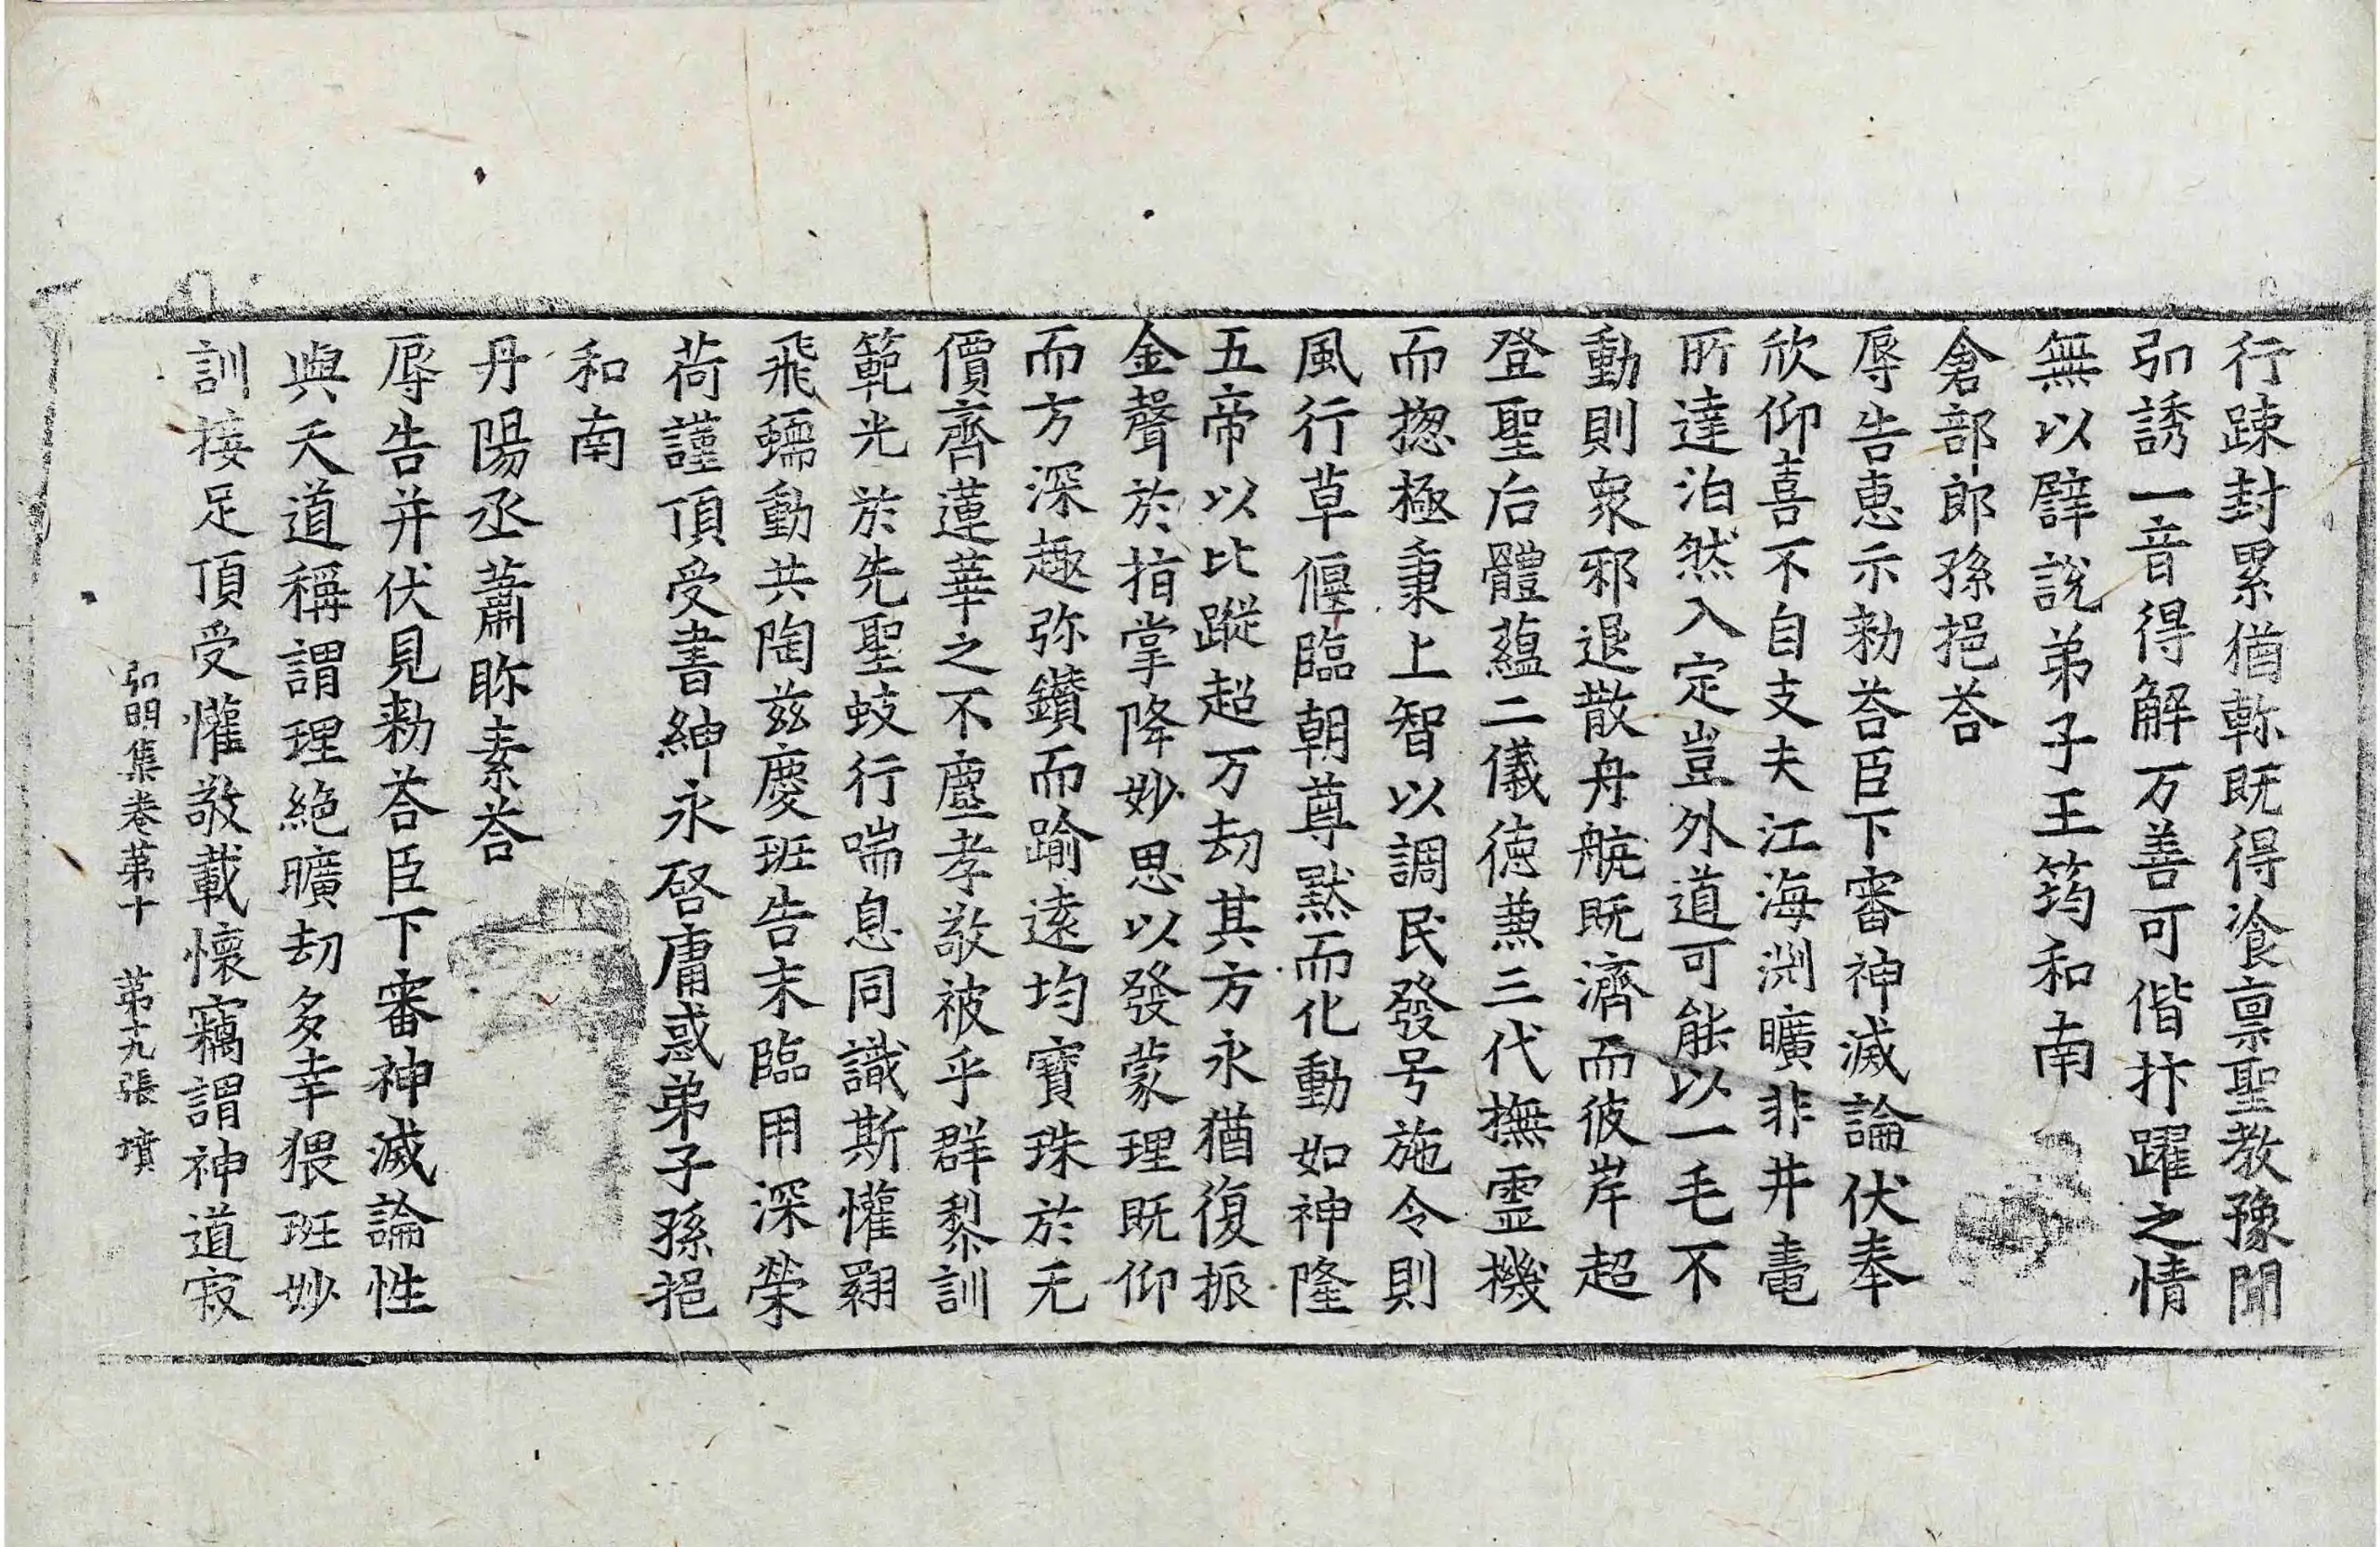 行踈封累猶軫既得飡禀聖教豫聞
弘誘一音得解万善可偕抃躍之情
無以譬說弟子王筠和南
倉部郎孫挹荅
辱告惠示勑荅臣下審神滅論伏奉
欣仰喜不自支夫江海渊曠非井鼃
所達泊然入定豈外道可能以一毛不
動則衆邪退散舟航既濟而彼岸超
登聖后體蘊二儀徳兼三代撫霊機
而揔極秉上智以調民發号施令則
風行草偃臨朝尊默而化動如神隆
五帝以比蹤超万劫其方永猶復振
金聲於指掌降妙思以發蒙理既仰
而方深趣弥鑽而踰遠均寳珠於无
價齊蓮華之不塵孝敬被乎群黎訓
範光於先聖蚑行喘息同識斯懽翾
飛蠕動共陶兹慶班告末臨用深榮
荷謹頂受書紳永啓庸惑弟子孫挹
和南
丹陽丞蕭眎素荅
辱告并伏見勑荅臣下審神滅論性
與天道稱謂理絶曠劫多幸猥班妙
訓接足頂受懽敬載懷竊謂神道寂
弘明集卷第十 第十九張 墳